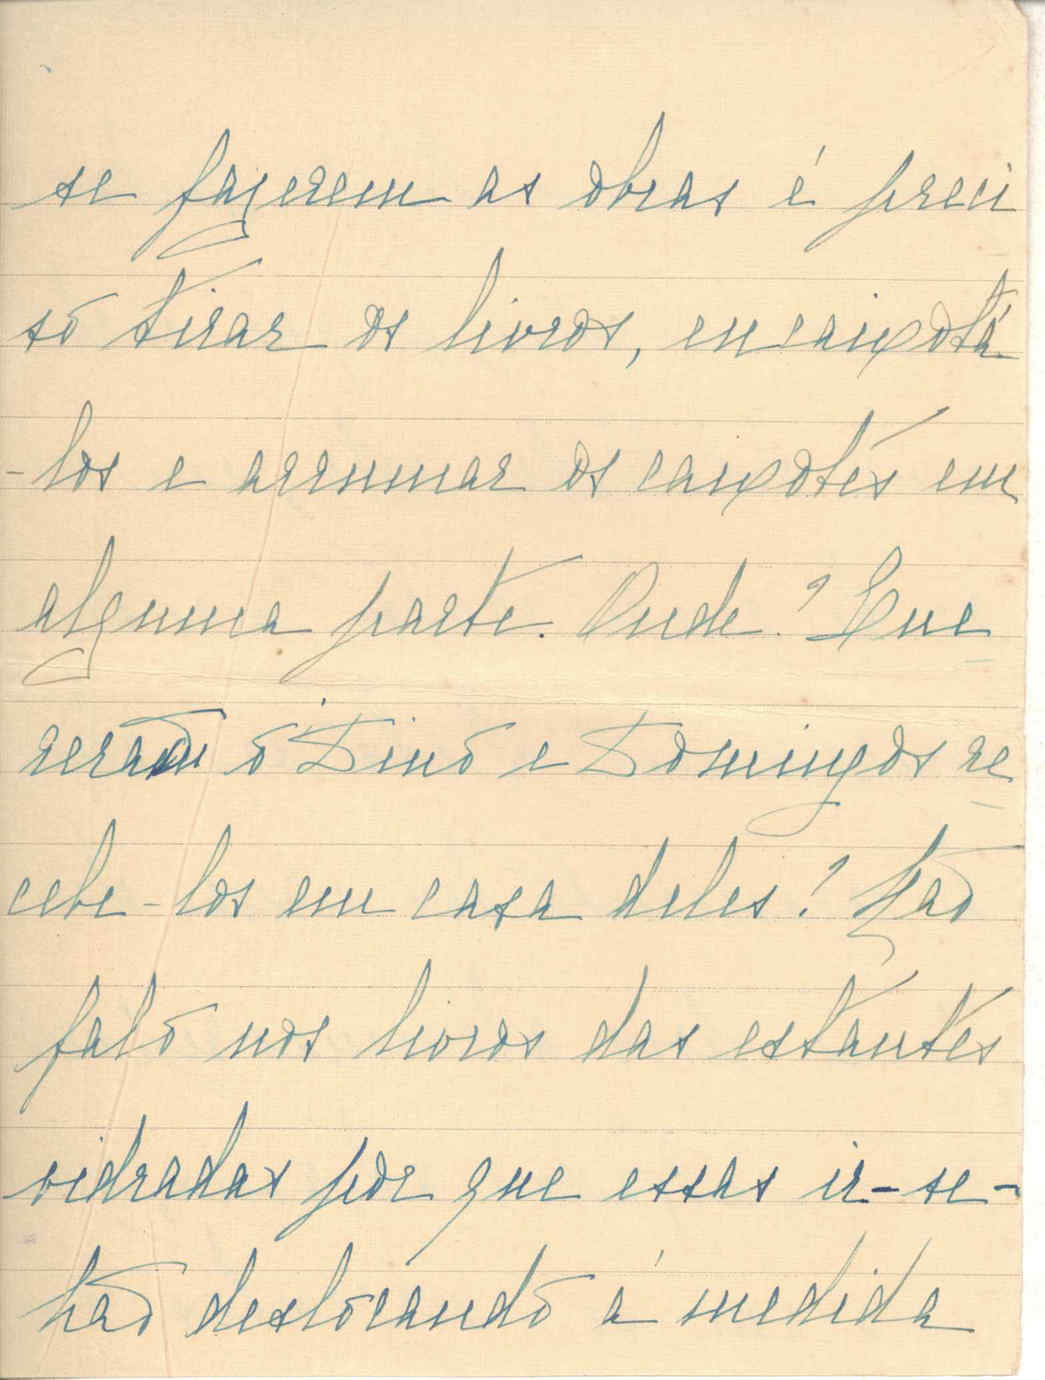 se fazerem as obras é preci
so tirar os livros, encaixotá
-los e arrumar os caixotes em
alguma parte. Onde? Que
rerão o Dino e Domingos re
cebe-los em casa deles? Não
falo nos livros das estantes
vidradas por que essas ir-se-
hão deslocando á medida